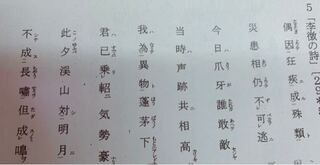 5 「李徴の詩」
偶因狂疾成殊類
災患相仍不可逃
今日爪牙誰敢敵
当時声跡共相高
我為異物蓬茅下
君已乗軺気勢豪
此夕渓山対明月
不成長嘯但成